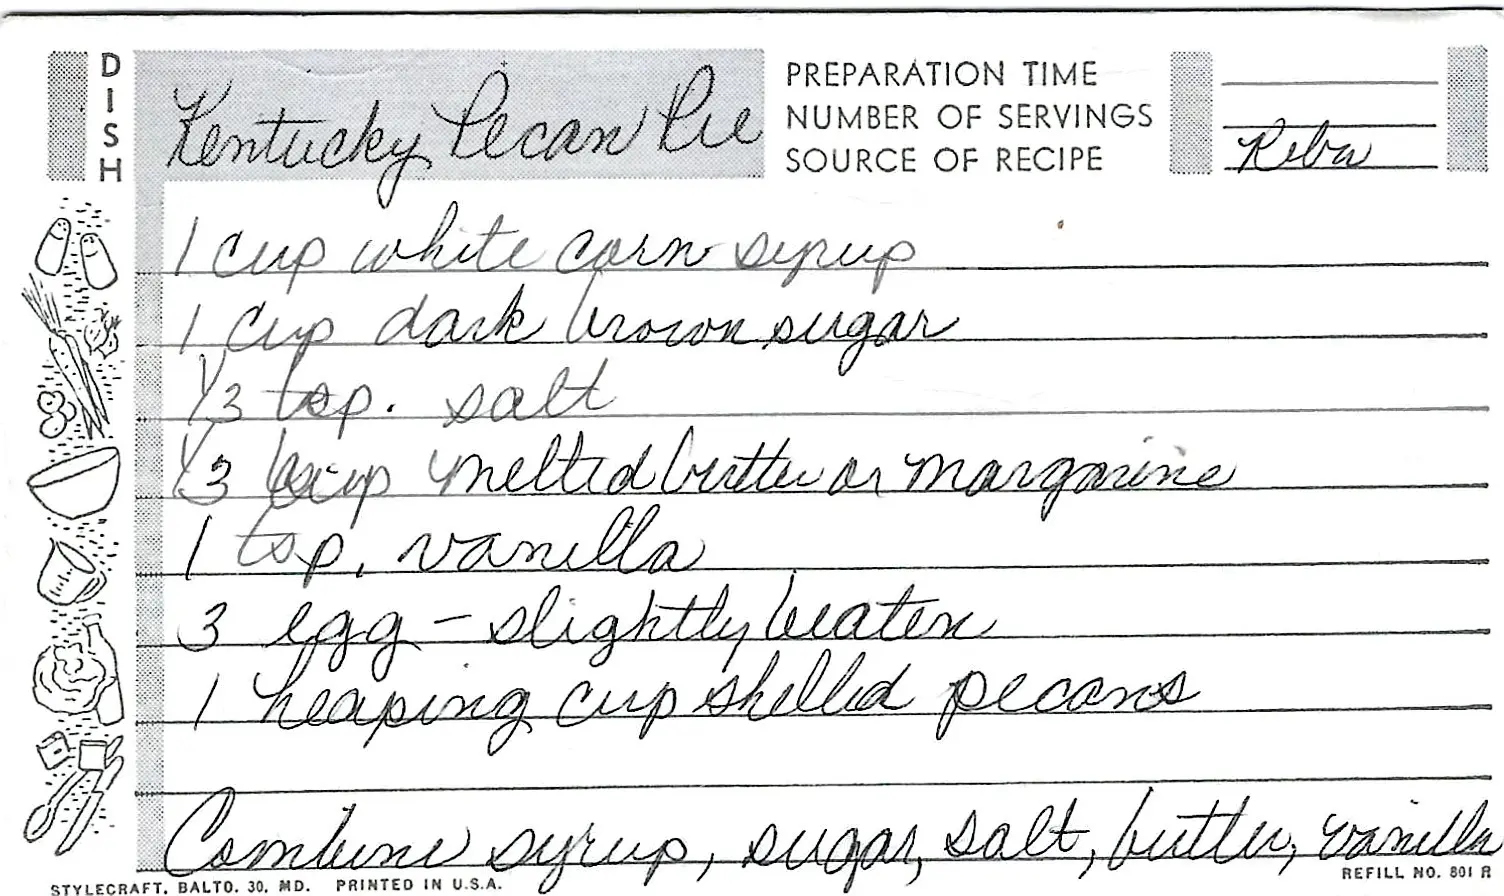 DISH
Kentucky Pecan Pie
PREPARATION TIME
NUMBER OF SERVINGS
SOURCE OF RECIPE
Reba
1 cup white corn syrup
1 cup dark brown sugar
1/3 tsp. salt
1/3 cup melted butter or margarine
1 tsp. vanilla
3 egg – slightly beaten
1 heaping cup shelled pecans
Combine syrup, sugar, salt, butter, vanilla
STYLECRAFT, BALTO. 30, MD. PRINTED IN U.S.A.
REFILL NO. 801 R